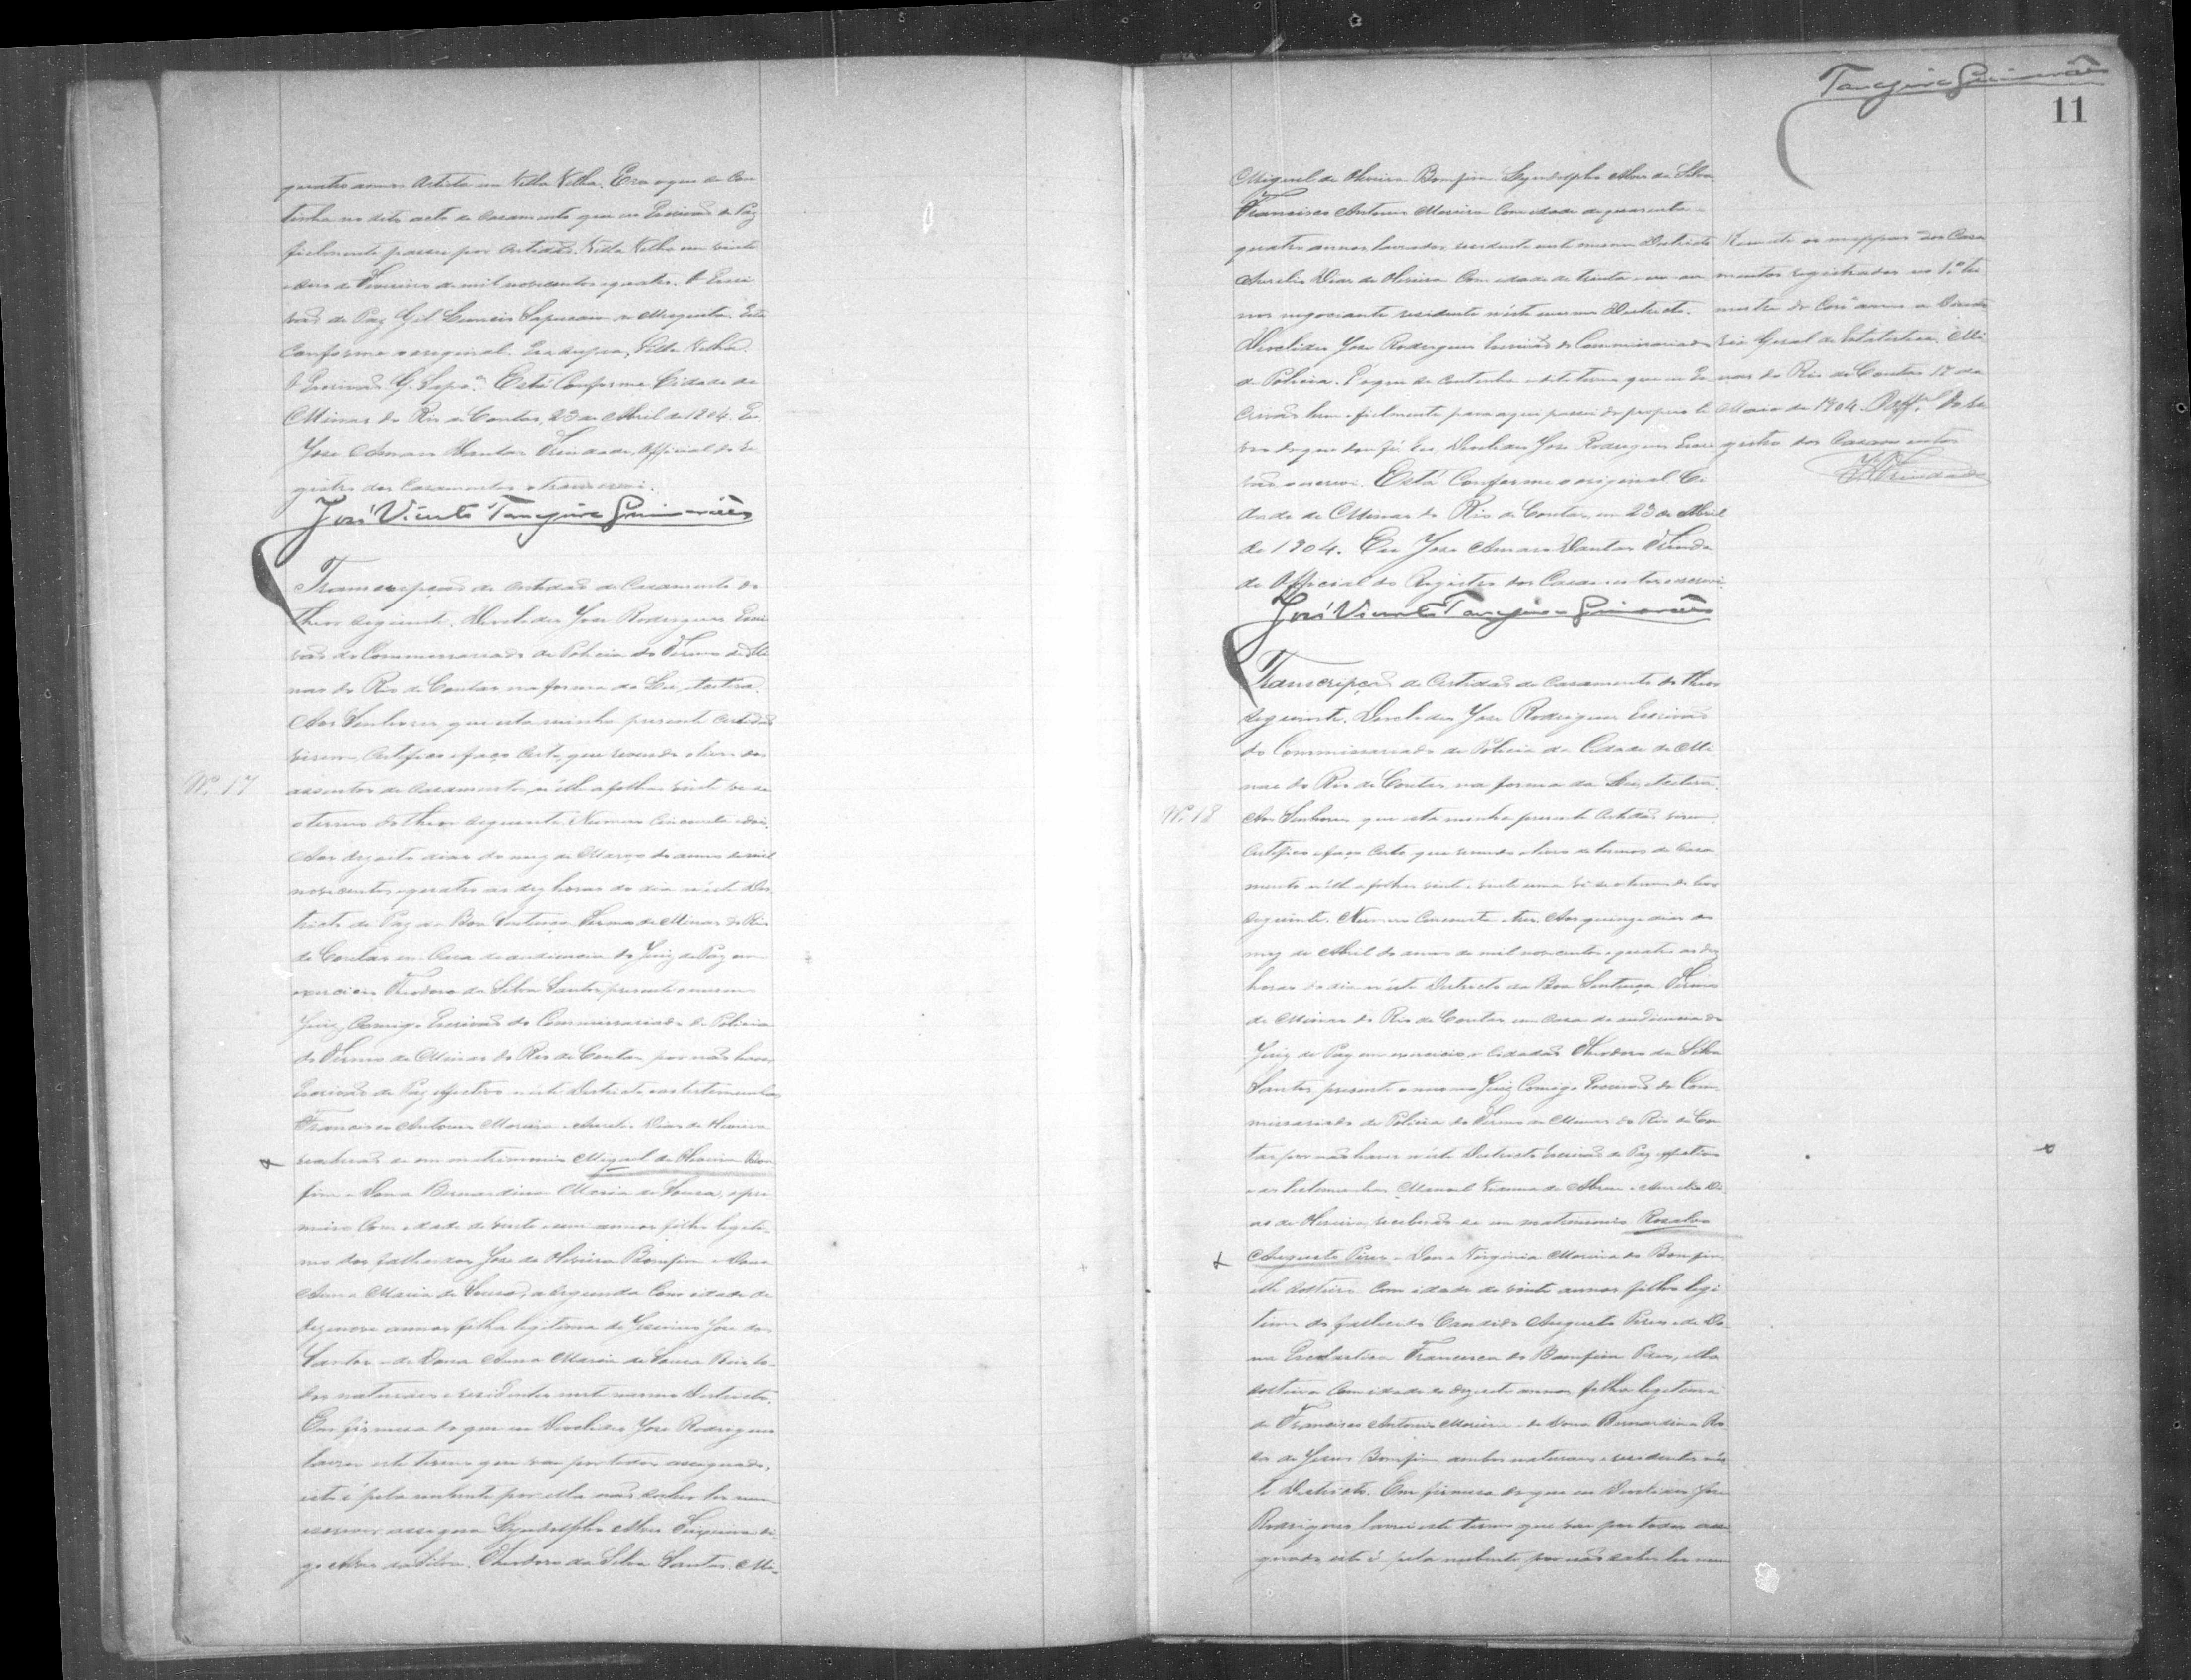 quatro annos Artista em Villa Velha. Era o que se con
tinha no dito acto de Casamento que eu Escrivão de Paz
fielmente passei por certidão. Villa Velha em vinte
de Fevereiro de mil novecentos e quatro. O Escri
vão de Paz Gil
Conforme o original. Villa Velha.
O Escrivão G. Está Conforme Cidade de
Minas do Rio de Contas, 23 de Abril de 1904. Eu
José Amaro Dantas Trindade, Official do Re
gistro dos Casamentos o transcrevi.
José Vicente Tanajura Guimarães
Transcripção de certidão de Casamento do
theor seguinte. Deoclides José Rodrigues Escri
vão do Commissariado de Policia do Termo de Mi
nas do Rio de Contas na forma da Lei, etcetera.
Aos Senhores que esta minha presente certidão
virem, Certifico e faço certo que revendo o livro dos
Nº 17
assentos de Casamento, n'elle a folhas vinte vi-se
o termo do theor seguinte. Numero cincoenta e dois.
Aos dezoito dias do mez de Março do anno de mil
novecentos e quatro as dez horas do dia n'este Dis
tricto de Paz da Boa Sentença Termo de Minas do Rio
de Contas em Casa de audiencia do Juiz de Paz em
exercicio Theodoro da Silva Santos presente o mesmo
Juiz, Comigo Escrivão do Commissariado de Policia
do Termo de Minas do Rio de Contas por não haver
Escrivão de Paz effectivo n'este Districto e as testemunhas
Francisco Antonio Moreira e Aurelio Dias de Oliveira
receberão-se em matrimonio Miguel de Oliveira Bom
fim e Dona Bernardina Maria de Sousa, o pri
meiro com idade de vinte e um annos filho legiti
mo dos fallecidos José de Oliveira Bomfim e Dona
Anna Maria de Sousa, a segunda com idade de
dezenove annos filha legitima de José dos
Santos e de Dona Anna Maria de Sousa to
dos naturaes e residentes neste mesmo Districto.
Em firmeza do que eu Deoclides José Rodrigues
lavrei este termo que vae por todos assignado,
isto é pela nubente por ella não saber ler nem
escrever assigna Lyndolpho Alves
Alves da Silva. Theodoro da Silva Santos. Mi-
Tanajura Guimarães
11
Miguel de Oliveira Bomfim. Lyndolpho Alves da Silva
Francisco Antonio Moreira com idade de quarenta e
quatro annos lavrador, residente neste mesmo Districto
Aurelio Dias de Oliveira com idade de trinta e um an
nos negociante residente n'este mesmo Districto.
Deoclides José Rodrigues Escrivão do Commissariado
de Policia. É o que se continha o dito termo que eu Es
crivão bem e fielmente para aqui passei do proprio li
vro do que dou fé. Eu, Deoclides José Rodrigues Escri
vão o escrevi. Está Conforme o original Ci
dade de Minas do Rio de Contas, em 23 de Abril
de 1904. Eu José Amaro Dantas Trinda
de Official do Registro dos Casamentos o escrevi
José Vicente Tanajura Guimarães
Remetti os mappas dos Casa
mentos registrados no 1º tri
mestre do Corre anno a Directo
ria Geral de Estatistica. Mi
nas do Rio de Contas 17 de
Maio de 1904. O Offal do Re
gistro dos Casamentos
Trindade
Transcripção de Certidão de Casamento do theor
seguinte. Deoclides José Rodrigues Escrivão
do Commissariado de Policia da Cidade de Mi
nas do Rio de Contas, na forma da Lei, etcetera.
Nº 18
Aos Senhores que esta minha presente Certidão virem,
Certifico e faço certo que revendo o livro de termos de Casa
mento n'elle a folhas vinte e vinte uma vi-se o termo do theor
seguinte. Numero cincoenta e tres. Aos quinze dias do
mez de Abril do anno de mil novecentos e quatro as dez
horas do dia n'este Districto da Boa Sentença Termo
de Minas do Rio de Contas em Casa de audiencia do
Juiz de Paz em exercicio o Cidadão Theodoro da Silva
Santos presente o mesmo Juiz Comigo Escrivão do Com
missariado de Policia do Termo de Minas do Rio de Con
tas por não haver n'este Districto Escrivão de Paz effectivo
e as testemunhas Manoel Vianna de Abreu e Aurelio Di
as de Oliveira, receberão-se em matrimonio Rosalvo
Augusto Pires e Dona Virginia Moreira do Bomfim
elle solteiro com idade de vinte annos filho legi
timo do fallecido Candido Augusto Pires e de Do
na Escolastica Francisca do Bomfim Pires, ella
solteira com idade de dezesete annos filha legitima
de Francisco Antonio Moreira e de Dona Bernardina Ro
sa de Jesus Bomfim ambos naturaes e residentes nes
te Districto. Em firmeza do que eu Deoclides José
Rodrigues lavrei este termo que vae por todos assi
gnado, isto é pela nubente por não saber ler nem